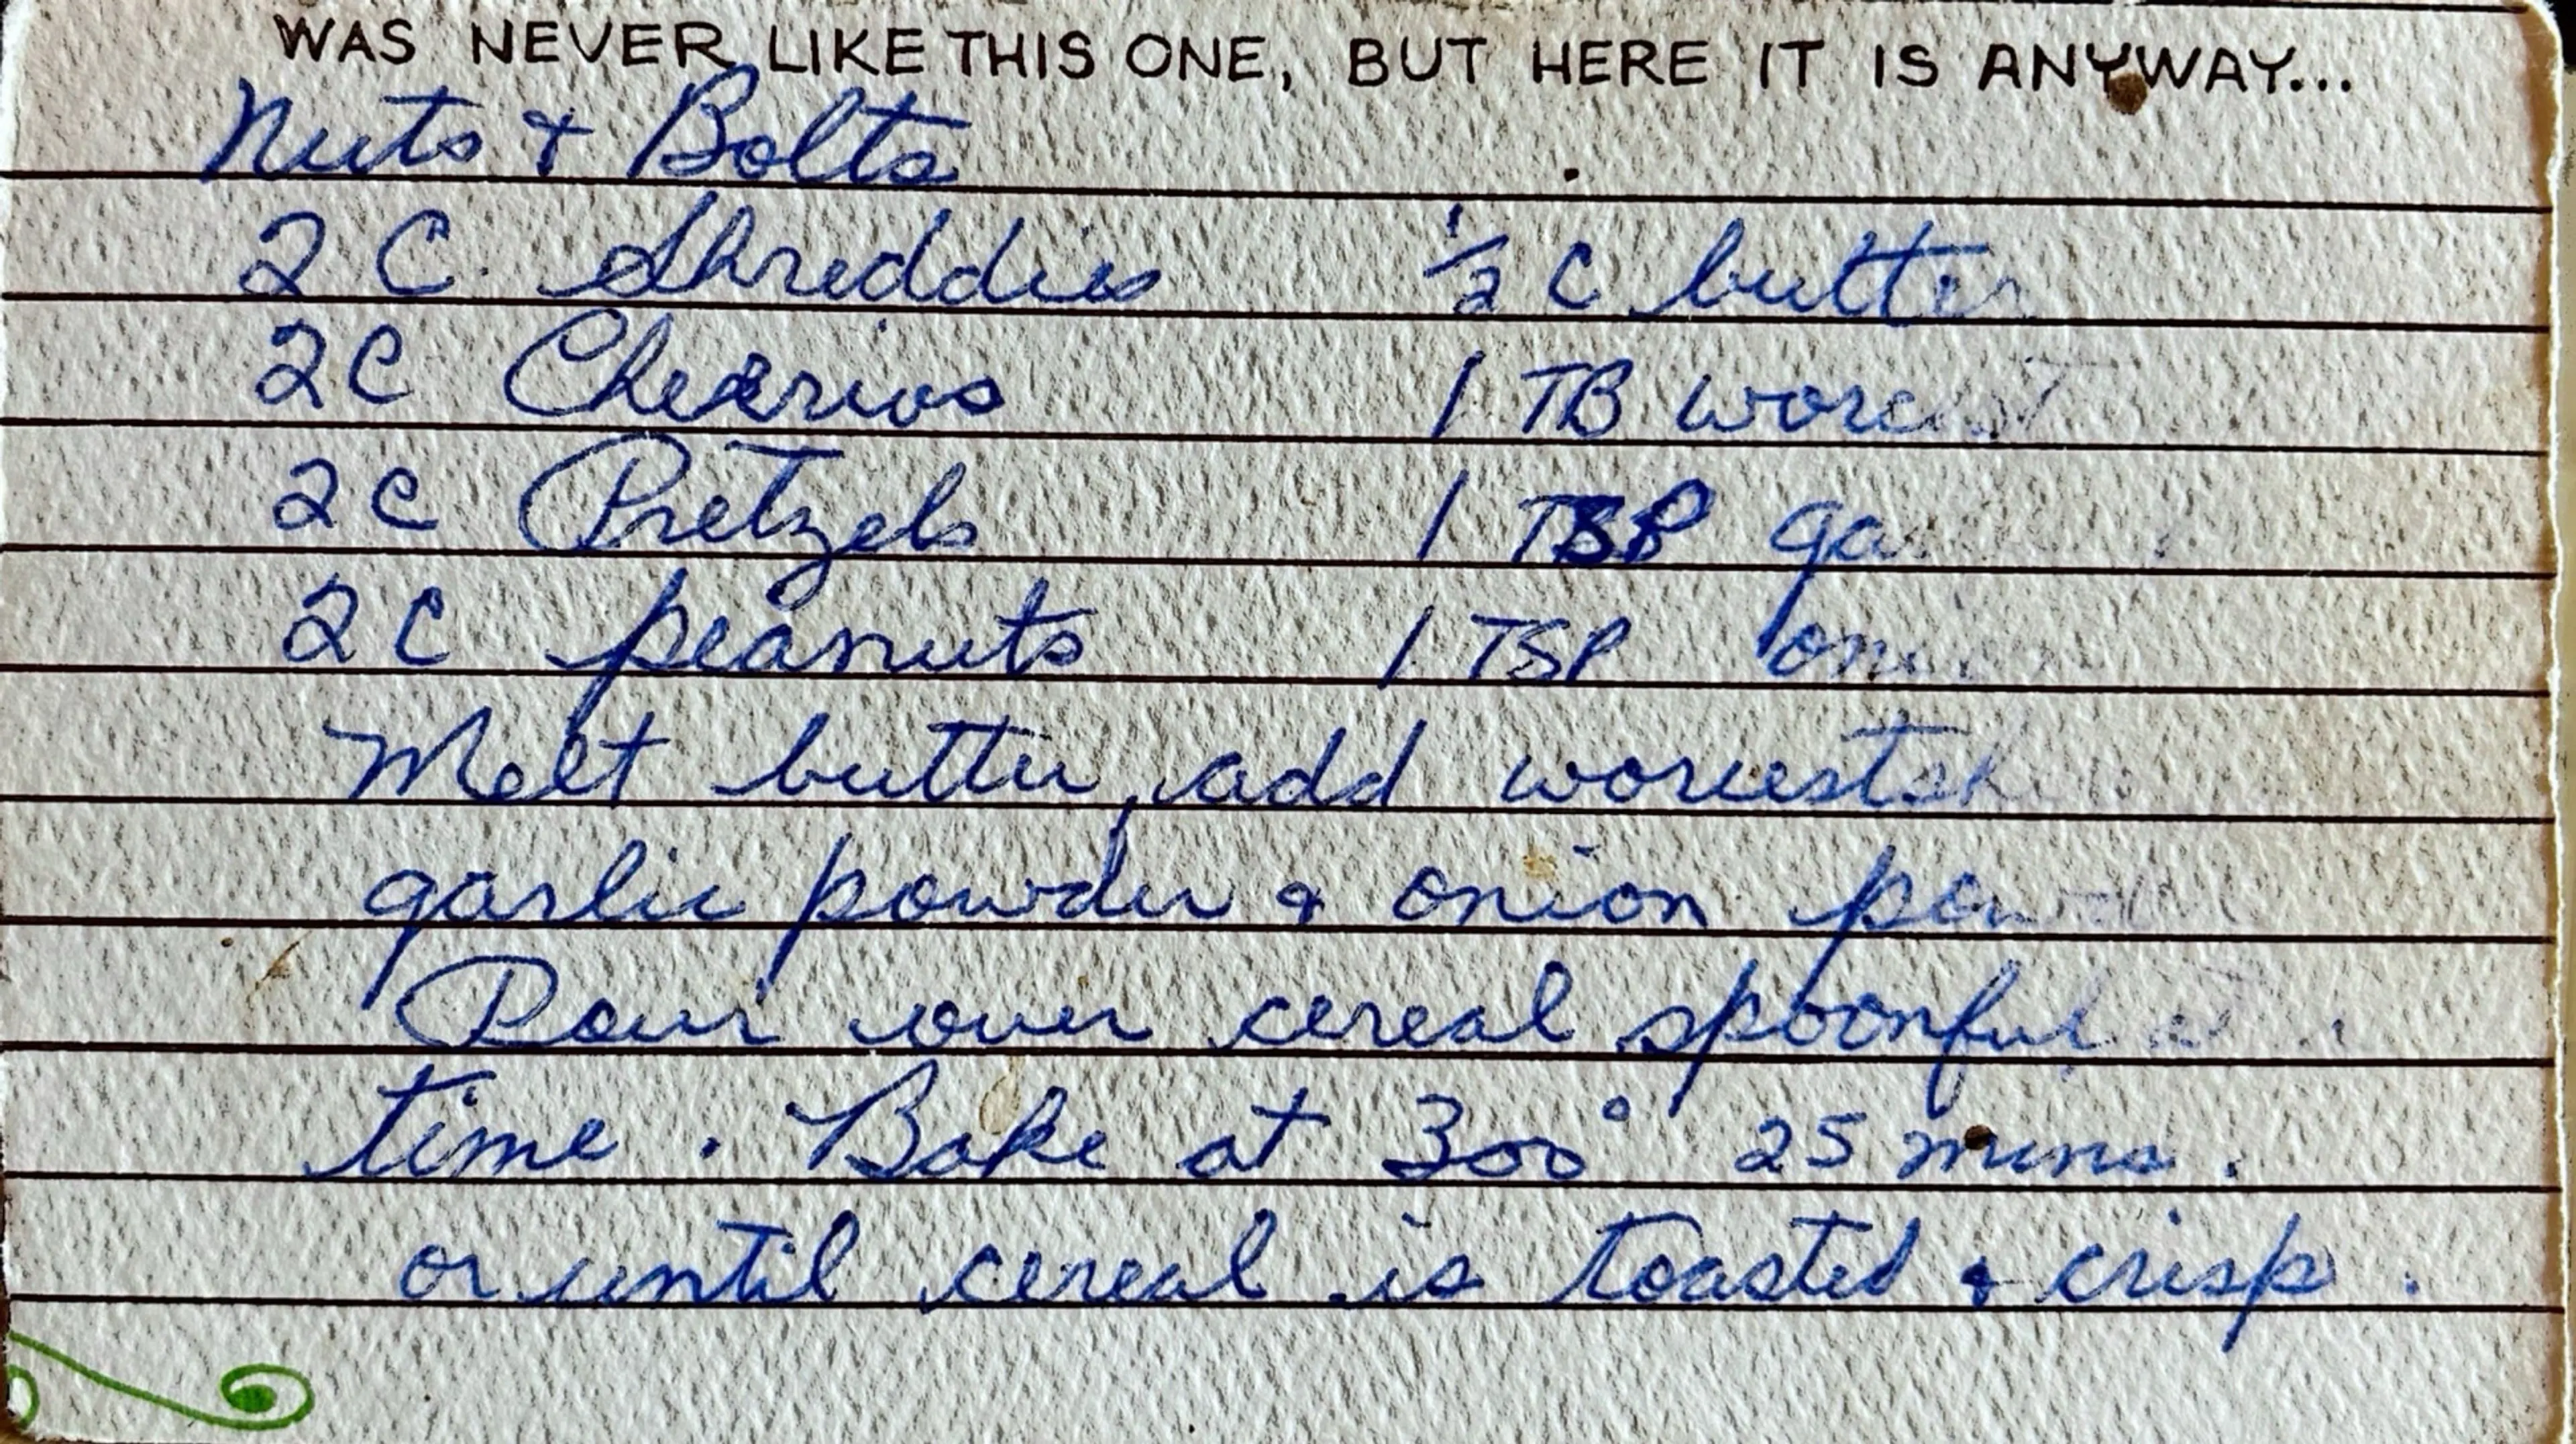 WAS NEVER LIKE THIS ONE, BUT HERE IT IS ANYWAY...
Nuts & Bolts
2 C. Shreddies ½ C butter
2C Cheerios 1 TB worcest
2C Pretzels 1 TSP
2C peanuts 1 TSP
Melt butter, add
garlic powder & onion
Pour over cereal spoonful at
time. Bake at 300° 25 mins.
or until cereal is toasted & crisp.